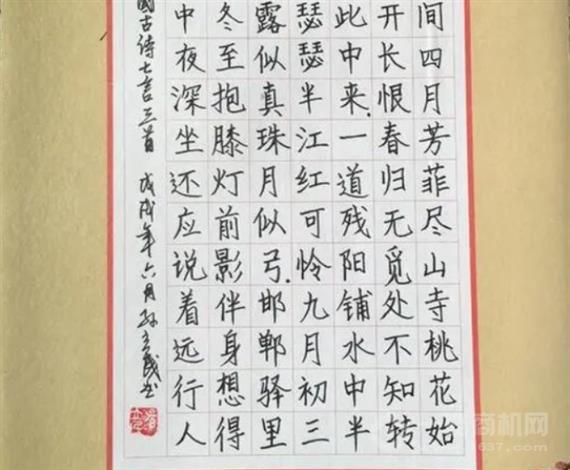 间四月芳菲尽山寺桃花始
开长恨春归无觅处不知转
此中来.一道残阳铺水中半
瑟瑟半江红可怜九月初三
露似真珠月似弓.邯郸驿里
冬至抱膝灯前影伴身想得
中夜深坐还应说着远行人
國古诗七言三首 戊戌年六月孙书
商机网
637.com